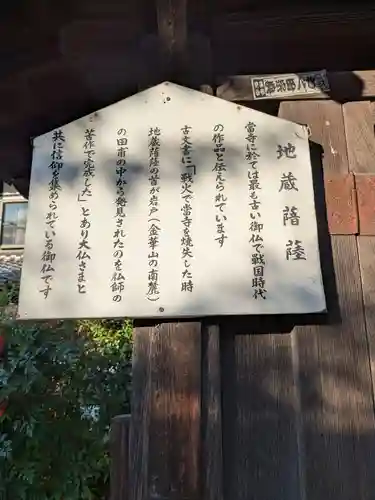 地蔵菩薩
当寺に於ては最も古い御仏で戦国時代
の作品と伝えられています
古文書に「戦火で当寺を焼失した時
地蔵菩薩の首が岩戸（金華山の南麓）
の田甫の中から発見されたのを仏師の
苦作で完成した」とあり大仏さまと
共に信仰を集められている御仏です